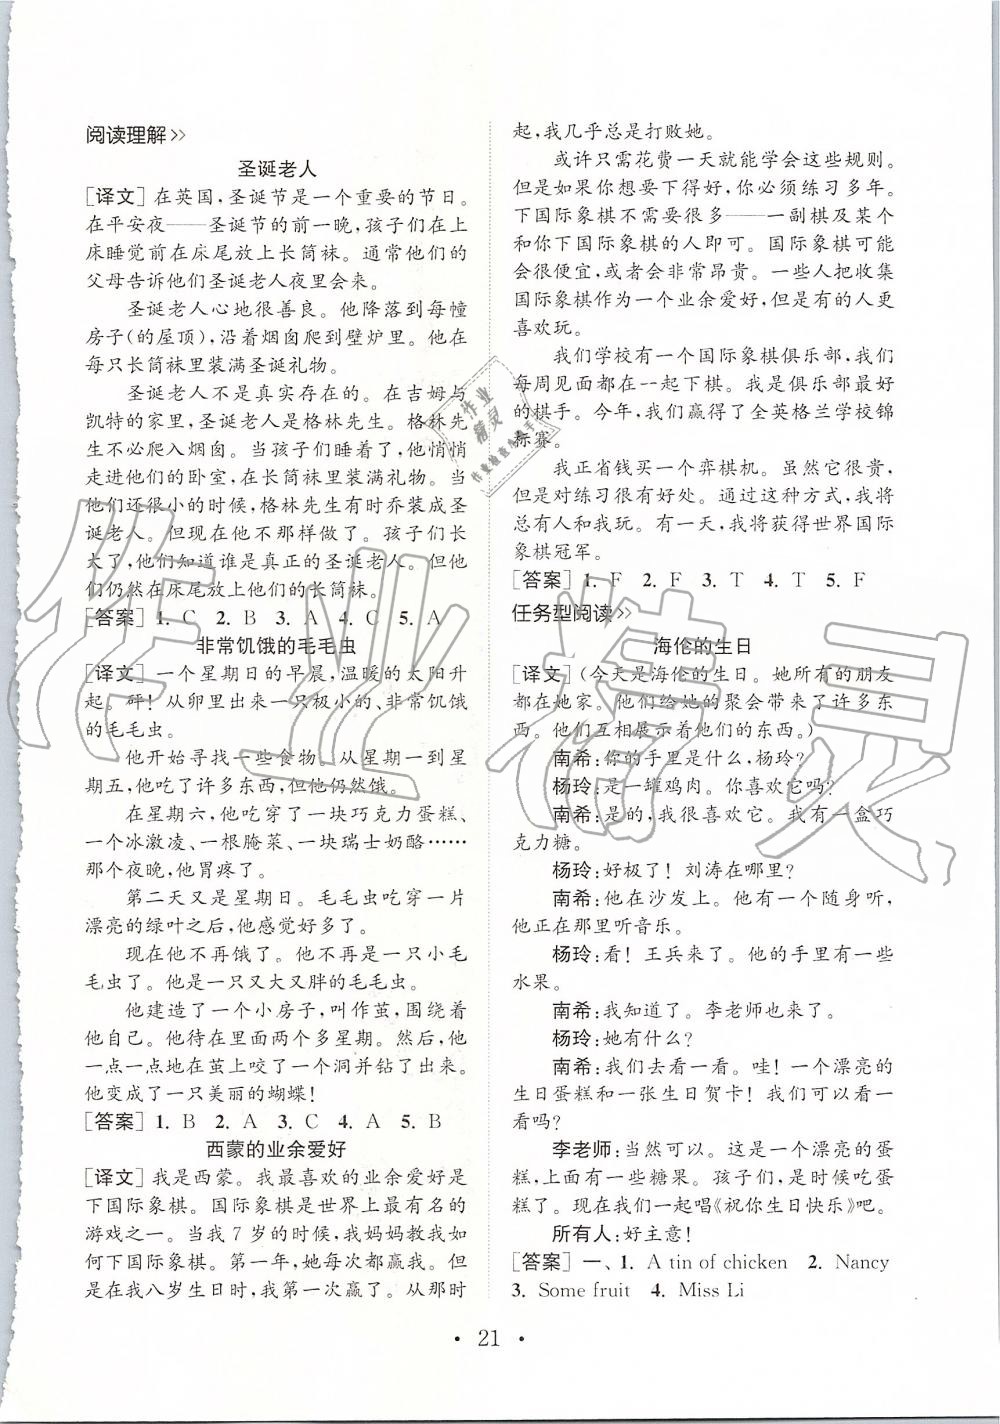 阅读理解>>
圣诞老人
[译文] 在英国,圣诞节是一个重要的节日。
在平安夜——圣诞节的前一晚,孩子们在上
床睡觉前在床尾放上长筒袜。通常他们的
父母告诉他们圣诞老人夜里会来。
圣诞老人心地很善良。他降落到每幢
房子(的屋顶),沿着烟囱爬到壁炉里。他
在每只长筒袜里装满圣诞礼物。
圣诞老人不是真实存在的。在吉姆与
凯特的家里,圣诞老人是格林先生。格林先
生不必爬入烟囱。当孩子们睡着了,他悄悄
走进他们的卧室,在长筒袜里装满礼物。当
他们还很小的时候,格林先生有时乔装成圣
诞老人。但现在他不那样做了。孩子们长
大了,他们知道谁是真正的圣诞老人。但他
们仍然在床尾放上他们的长筒袜。
[答案] 1. C 2. B 3. A 4. C 5. A
非常饥饿的毛毛虫
[译文] 一个星期日的早晨,温暖的太阳升
起。砰!从卵里出来一只极小的、非常饥饿
的毛毛虫。
他开始寻找一些食物。从星期一到星
期五,他吃了许多东西,但他仍然饿。
在星期六,他吃穿了一块巧克力蛋糕、
一个冰激凌、一根腌菜、一块瑞士奶酪……
那个夜晚,他胃疼了。
第二天又是星期日。毛毛虫吃穿一片
漂亮的绿叶之后,他感觉好多了。
现在他不再饿了。他不再是一只小毛
毛虫了。他是一只又大又胖的毛毛虫。
他建造了一个小房子,叫作茧,围绕着
他自己。他待在里面两个多星期。然后,他
一点一点地在茧上咬了一个洞并钻了出来。
他变成了一只美丽的蝴蝶!
[答案] 1. B 2. A 3. C 4. A 5. B
西蒙的业余爱好
[译文] 我是西蒙。我最喜欢的业余爱好是
下国际象棋。国际象棋是世界上最有名的
游戏之一。当我 7 岁的时候,我妈妈教我如
何下国际象棋。第一年,她每次都赢我。但
是在我八岁生日时,我第一次赢了她。从那时
起,我几乎总是打败她。
或许只需花费一天就能学会这些规则。
但是如果你想要下得好,你必须练习多年。
下国际象棋不需要很多——一副棋及某个
和你下国际象棋的人即可。国际象棋可能
会很便宜,或者会非常昂贵。一些人把收集
国际象棋作为一个业余爱好,但是有的人更
喜欢玩。
我们学校有一个国际象棋俱乐部,我们
每周见面都在一起下棋。我是俱乐部最好
的棋手。今年,我们赢得了全英格兰学校锦
标赛。
我正省钱买一个弈棋机。虽然它很贵,
但是对练习很有好处。通过这种方式,我将
总有人和我玩。有一天,我将获得世界国际
象棋冠军。
[答案] 1. F 2. F 3. T 4. T 5. F
任务型阅读>>
海伦的生日
[译文] (今天是海伦的生日。她所有的朋友
都在她家。他们给她的聚会带来了许多东
西。他们互相展示着他们的东西。)
南希:你的手里是什么,杨玲?
杨玲:是一罐鸡肉。你喜欢它吗?
南希:是的,我很喜欢它。我有一盒巧
克力糖。
杨玲:好极了!刘涛在哪里?
南希:他在沙发上。他有一个随身听,
他正在那里听音乐。
杨玲:看!王兵来了。他的手里有一些
水果。
南希:我知道了。李老师也来了。
杨玲:她有什么?
南希:我们去看一看。哇!一个漂亮的
生日蛋糕和一张生日贺卡!我们可以看一
看吗?
李老师:当然可以。这是一个漂亮的蛋
糕,上面有一些糖果。孩子们,是时候吃蛋
糕了。现在我们一起唱《祝你生日快乐》吧。
所有人:好主意!
[答案] 一、1. A tin of chicken 2. Nancy
3. Some fruit 4. Miss Li
• 21 •
作业精灵
作业
精灵